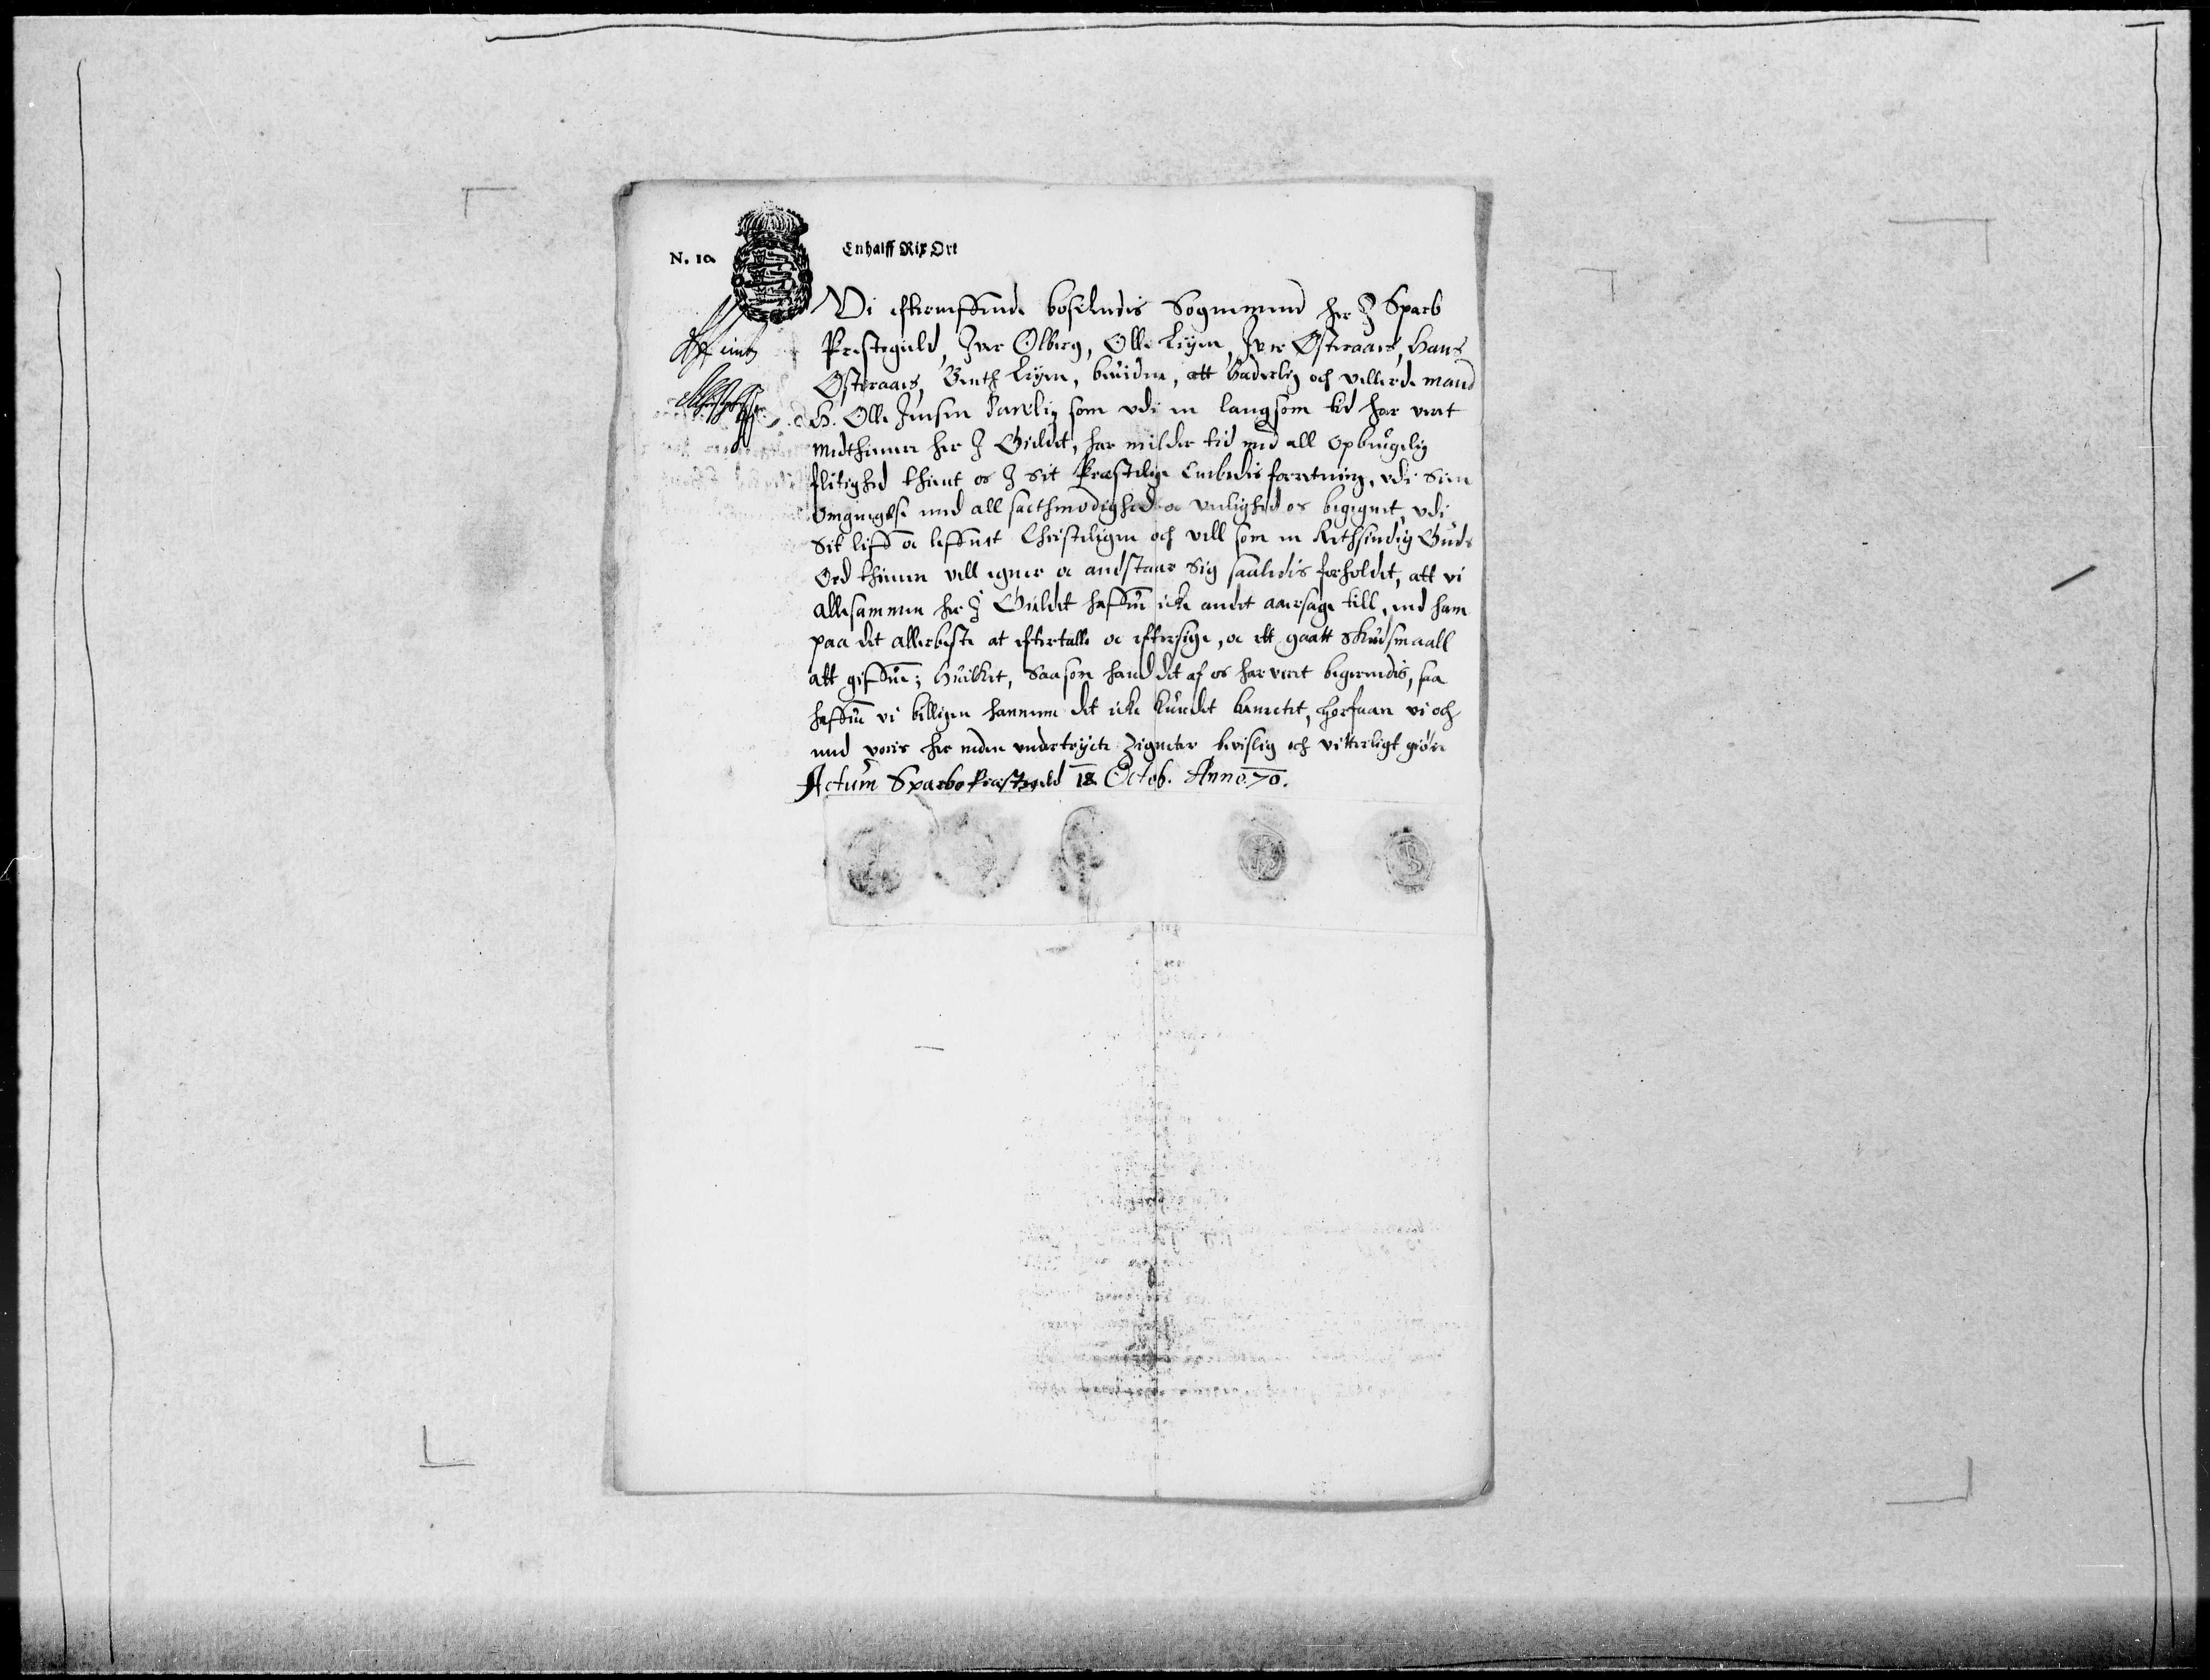 N. 10
Enhalff Rix Ort
Vi eftterneffnde bosidendis Sognemend her J Sparb
Prestegield, Jver Olberg, Olle Lejen, Jver Østeraaes, Hans
Østeraaes, Benth Lejen, beuidne, att hæderlig och vellerde mand
H. Olle Jensen som vdi en langsom tid har veret
Medthienner her J Gieldet, har midler tid med all opbuegelig
flitighed thient os J Sit Præstelige Embedis forretning, vdi Sin
Omgiengelse med all sacthmodighed oc venlighed os begegnet, vdi
Sit liff oc leffnet Christeligen och vell som en Retsindig Guds
Ord thienere vell egner oc andstaar Sig saaledis forholdet, att vi
allesammen her J Gieldet haffue icke andet aarsage till, end ham
paa det allerbeste at eftertalle oc eftersige, oc ett gaatt Skudsmaall
att giffue; Huilket, Saasom hand det af os har veret begierendis, saa
haffue vi billigen hannem det icke kundet benectet, Herfaare vi och
med voris her neden vndertrycte Zigneter beuislig och vitterligt giøre
Actum Sparbo Præstegield 18 Octob. Anno 70.